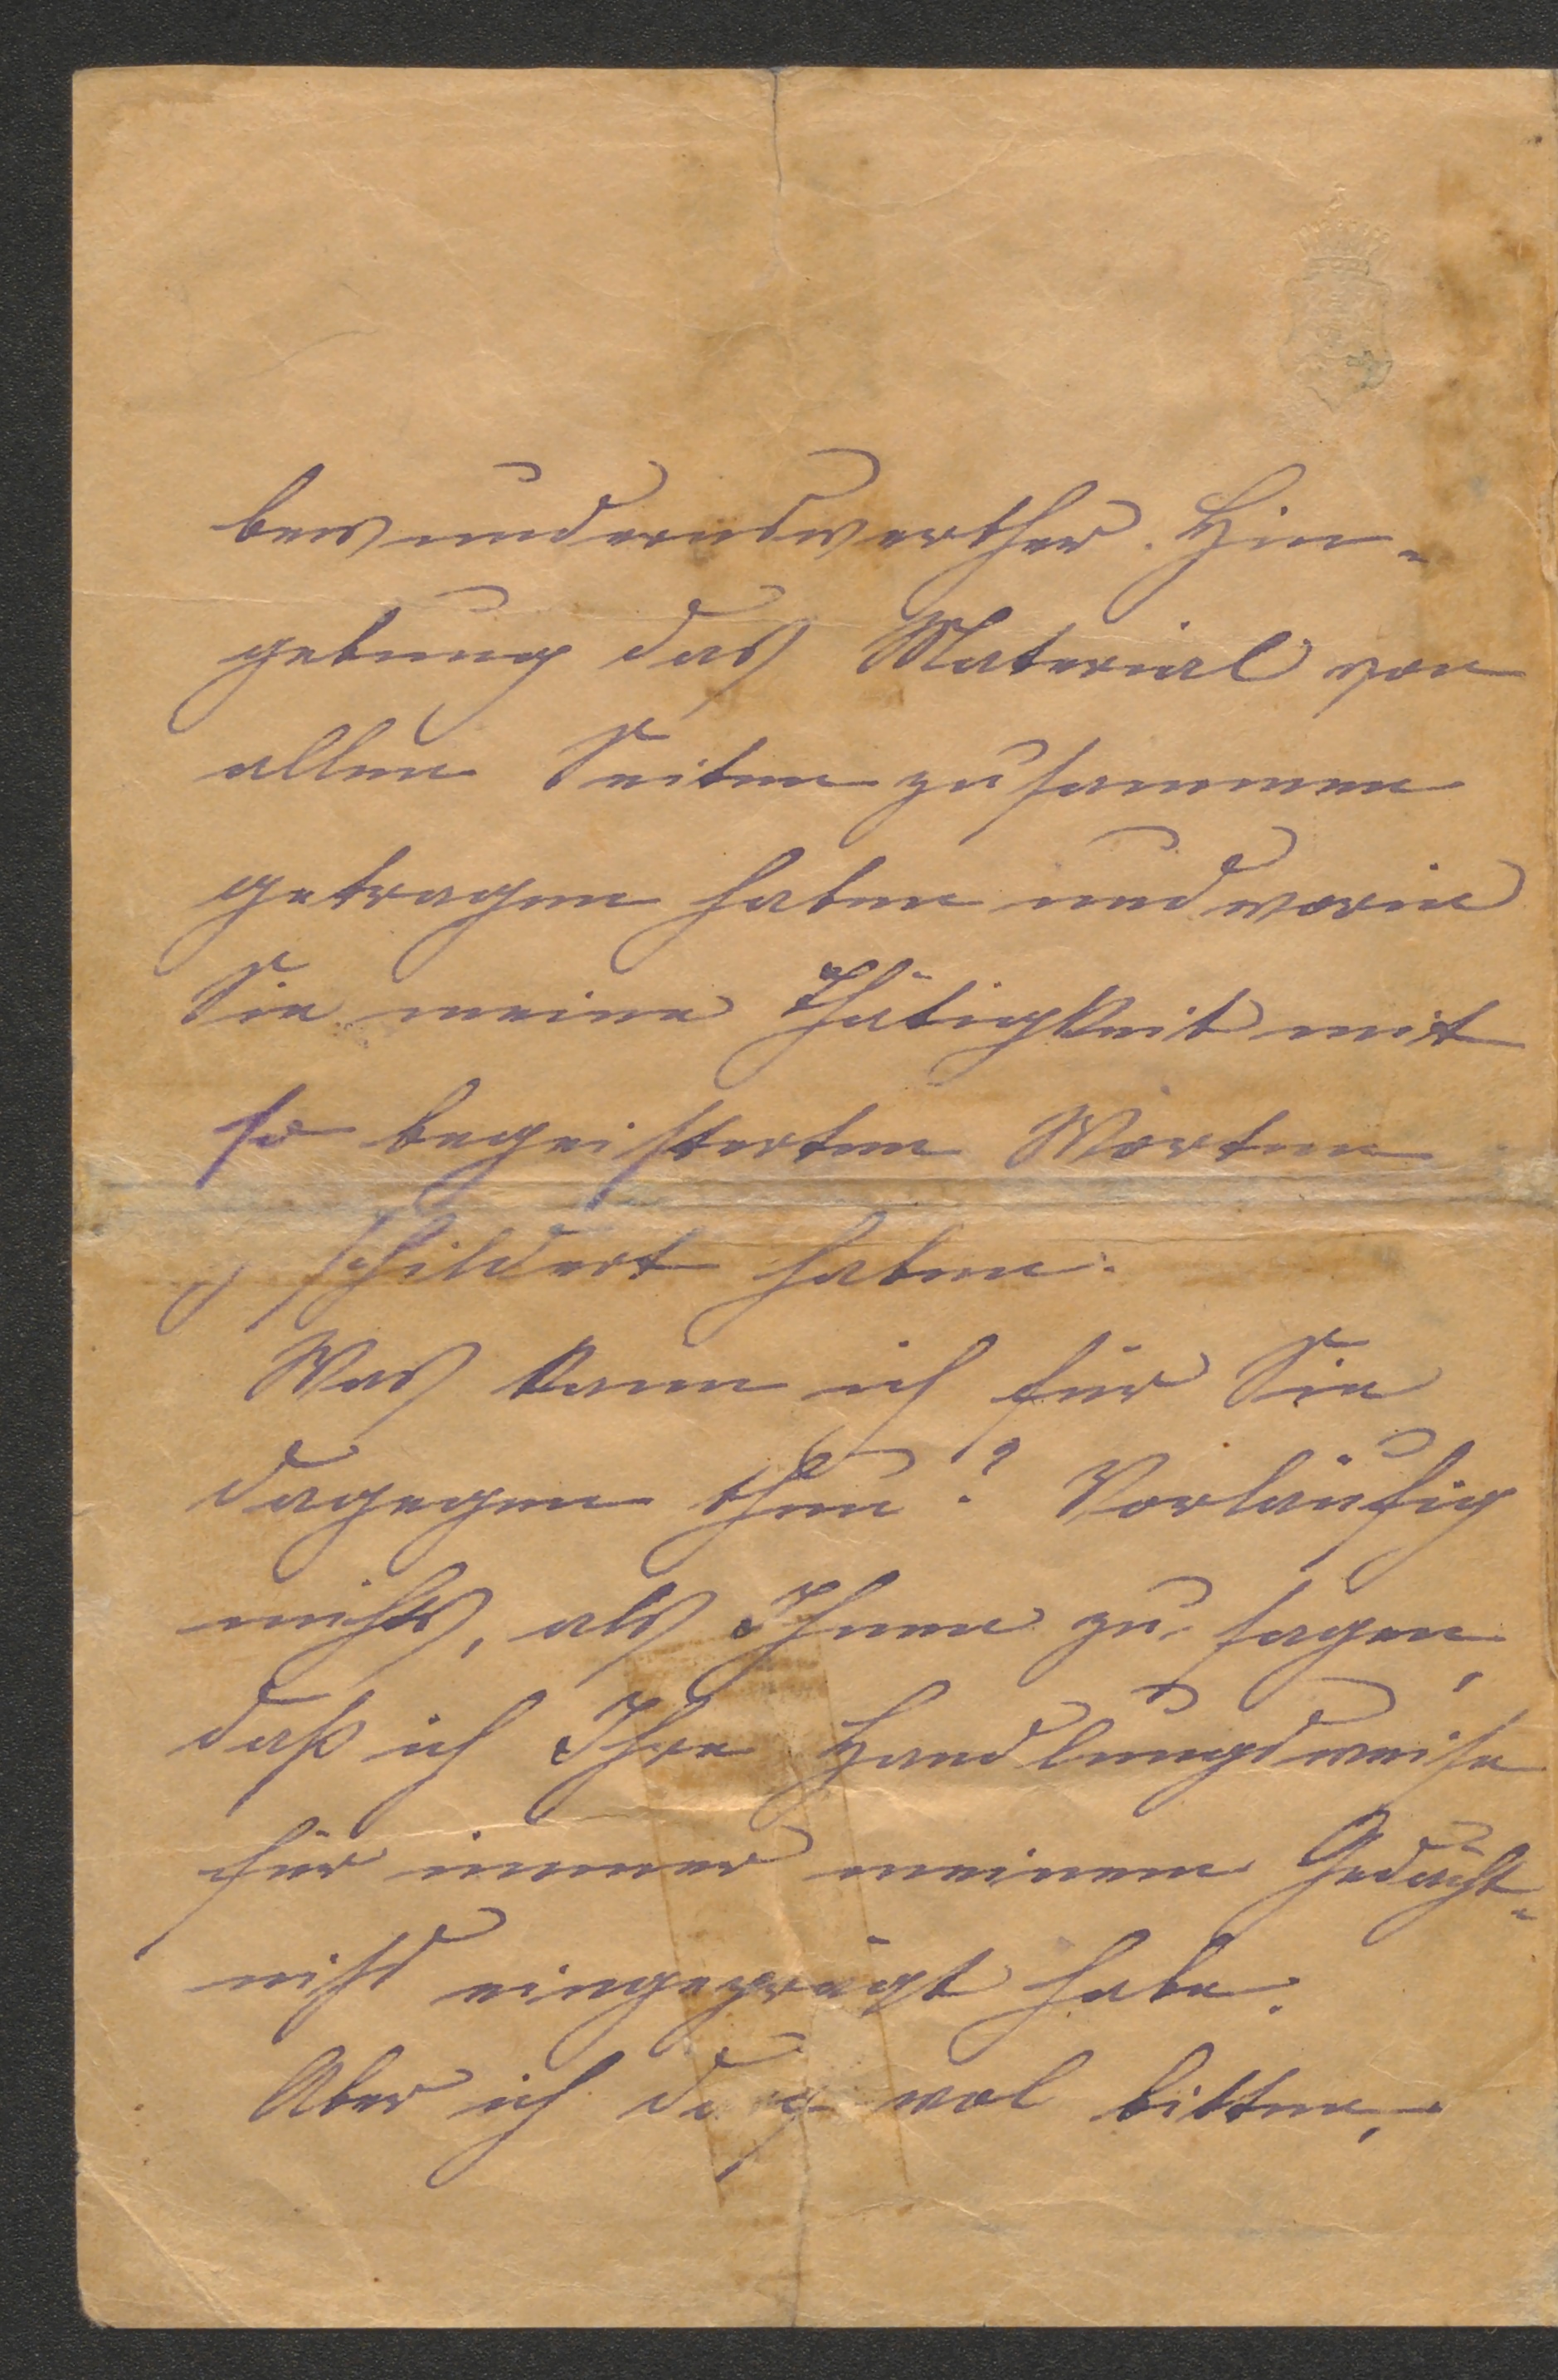 bewundernswerther Hin-
gebung das Material von
allen Seiten zusammen
getragen haben und worin
Sie meine Thätigkeit mit
so begeisterten Worten
geschildert haben.
Was kann ich für Sie
dagegen thun? Vorläufig
nichts, als Ihnen zu sagen,
daß ich Ihre Handlungsweise
für immer meinem Gedächt-
niss eingeprägt habe.
Aber ich darf wol bitten,